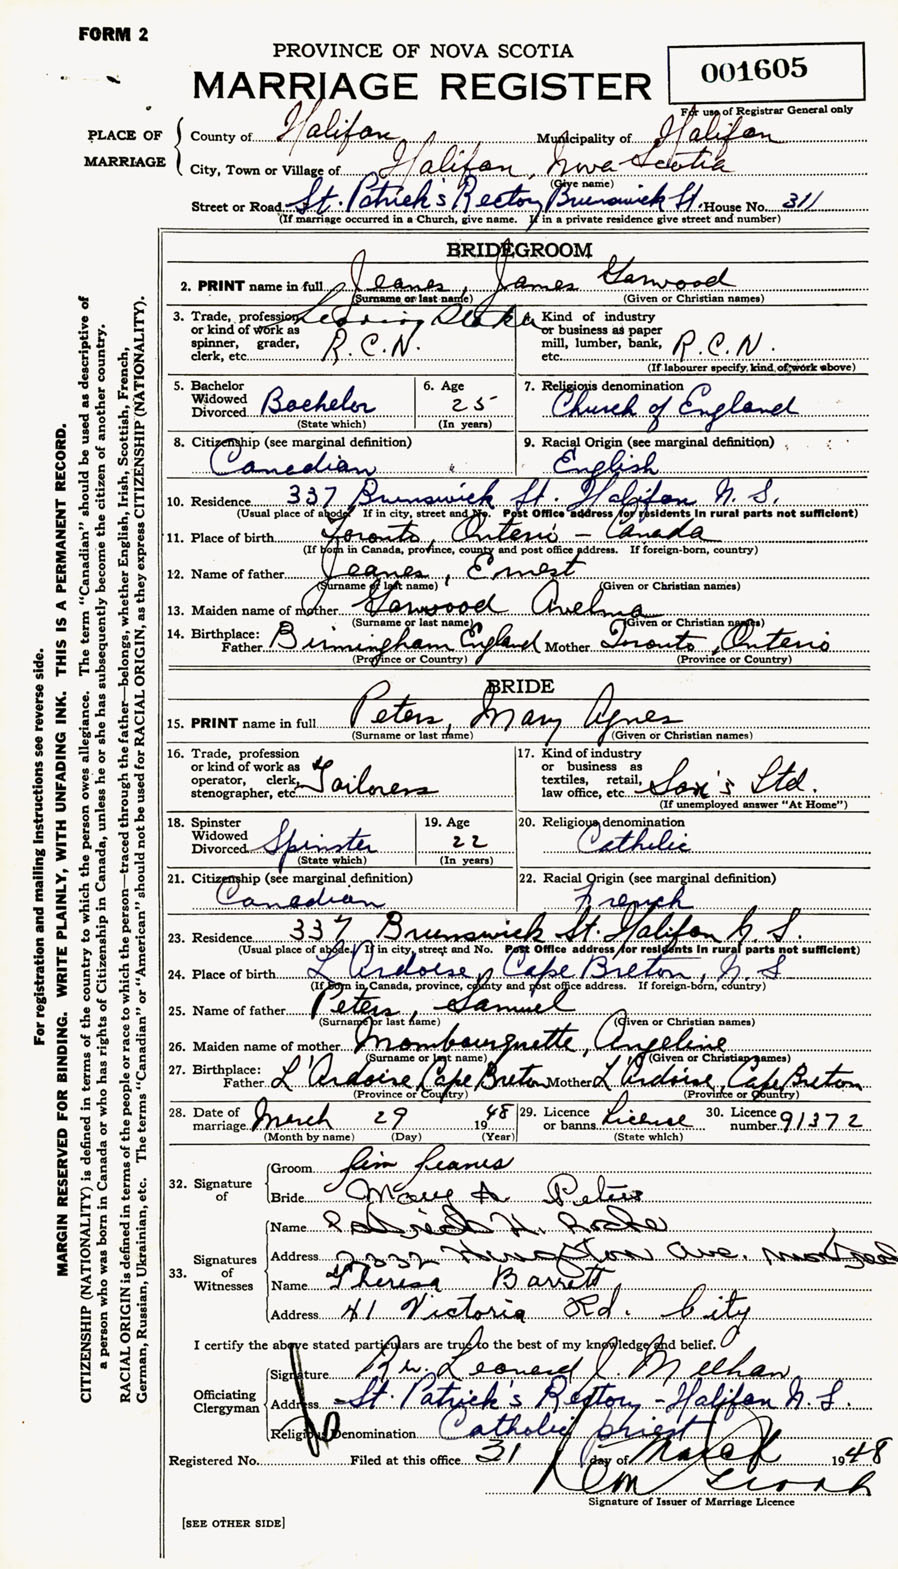 FORM 2
PROVINCE OF NOVA SCOTIA
MARRIAGE REGISTER
001605
For use of Registrar General only
PLACE OF MARRIAGE
County of Halifax Municipality of Halifax
City, Town or Village of Halifax, Nova Scotia
(Give name)
Street or Road St. Patrick's Rectory Brunswick St. House No. 311
(If marriage occurred in a Church, give name. If in a private residence give street and number)
BRIDEGROOM
2. PRINT name in full Jeanes, James Garwood
(Surname or last name) (Given or Christian names)
3. Trade, profession or kind of work as spinner, grader, clerk, etc. Leading Stoker R.C.N.
4. Kind of industry or business as paper mill, lumber, bank, etc. R.C.N.
(If labourer specify kind of work above)
5. Bachelor Widowed Divorced Bachelor
(State which)
6. Age 25
(In years)
7. Religious denomination Church of England
8. Citizenship (see marginal definition) Canadian
9. Racial Origin (see marginal definition) English
10. Residence 337 Brunswick St. Halifax N.S.
(Usual place of abode. If in city, street and No. Post Office address for residents in rural parts not sufficient)
11. Place of birth Toronto, Ontario - Canada
(If born in Canada, province, county and post office address. If foreign-born, country)
12. Name of father Jeanes, Ernest
(Surname or last name) (Given or Christian names)
13. Maiden name of mother Garwood
(Surname or last name) (Given or Christian names)
14. Birthplace: Father Birmingham England Mother Toronto, Ontario
(Province or Country) (Province or Country)
BRIDE
15. PRINT name in full Peters, Mary Agnes
(Surname or last name) (Given or Christian names)
16. Trade, profession or kind of work as operator, clerk, stenographer, etc. Tailoress
17. Kind of industry or business as textiles, retail, law office, etc. Ltd.
(If unemployed answer "At Home")
18. Spinster Widowed Divorced Spinster
(State which)
19. Age 22
(In years)
20. Religious denomination Catholic
21. Citizenship (see marginal definition) Canadian
22. Racial Origin (see marginal definition) French
23. Residence 337 Brunswick St. Halifax N.S.
(Usual place of abode. If in city, street and No. Post Office address for residents in rural parts not sufficient)
24. Place of birth L'Ardoise, Cape Breton, N.S
(If born in Canada, province, county and post office address. If foreign-born, country)
25. Name of father Peters, Samuel
(Surname or last name) (Given or Christian names)
26. Maiden name of mother Mombourquette, Angeline
(Surname or last name) (Given or Christian names)
27. Birthplace: Father L'Ardoise, Cape Breton Mother L'Ardoise, Cape Breton
(Province or Country) (Province or Country)
28. Date of marriage March 29 1948
(Month by name) (Day) (Year)
29. Licence or banns License
(State which)
30. Licence number 91372
32. Signature of
Groom Jim Jeanes
Bride Mary A. Peters
33. Signatures of Witnesses
Name H.
Address Ave. Montreal
Name Theresa Barrett
Address 41 Victoria Rd. City
I certify the above stated particulars are true to the best of my knowledge and belief.
Officiating Clergyman
Signature Rev. Leonard J. Meehan
Address St. Patrick's Rectory - Halifax N.S.
Religious Denomination Catholic priest
Registered No. Filed at this office 31 day of March 1948
Signature of Issuer of Marriage Licence
[SEE OTHER SIDE]
For registration and mailing instructions see reverse side.
MARGIN RESERVED FOR BINDING. WRITE PLAINLY, WITH UNFADING INK. THIS IS A PERMANENT RECORD.
CITIZENSHIP (NATIONALITY) is defined in terms of the country to which the person owes allegiance. The term "Canadian" should be used as descriptive of
a person who was born in Canada or who has rights of Citizenship in Canada, unless he or she has subsequently become the citizen of another country.
RACIAL ORIGIN is defined in terms of the people or race to which the person—traced through the father—belongs, whether English, Irish, Scottish, French,
German, Russian, Ukrainian, etc. The terms "Canadian" or "American" should not be used for RACIAL ORIGIN, as they express CITIZENSHIP (NATIONALITY).